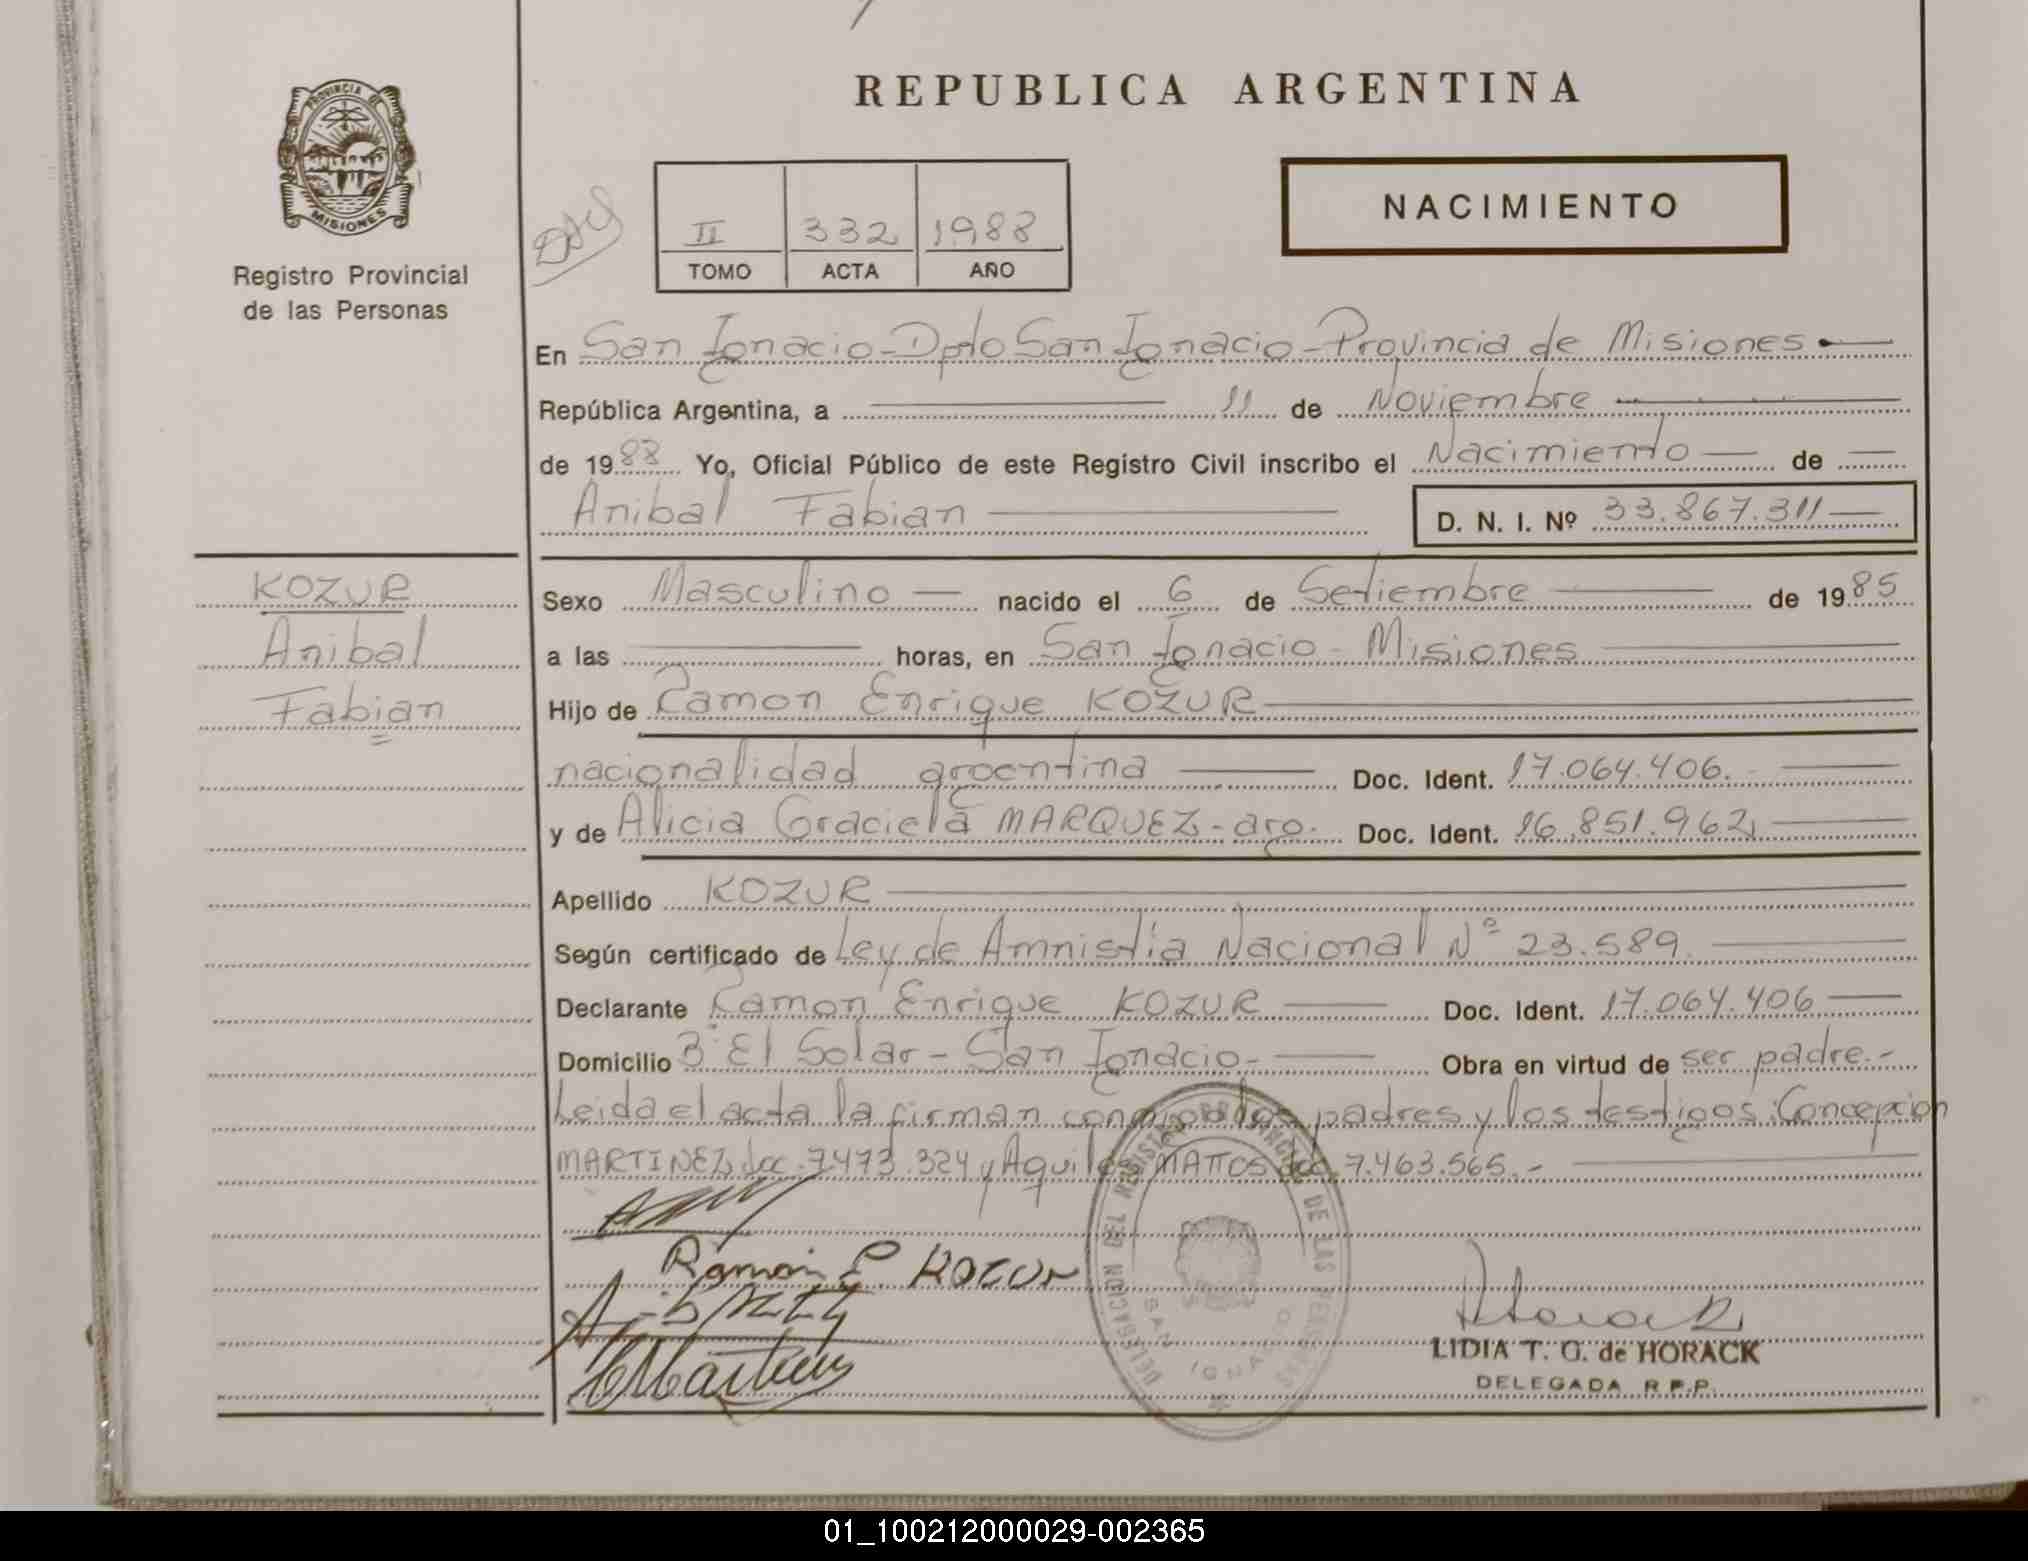 REPUBLICA ARGENTINA
PROVINCIA DE
MISIONES
Registro Provincial
de las Personas
II 332 1988
TOMO ACTA AÑO
NACIMIENTO
En San Ignacio - Dpto San Ignacio - Provincia de Misiones
República Argentina, a 11 de Noviembre
de 1988 Yo, Oficial Público de este Registro Civil inscribo el Nacimiento de
Anibal Fabian
D. N. I. Nº 33.867.311
KOZUR
Anibal
Fabian
Sexo Masculino nacido el 6 de Setiembre de 1985
a las horas, en San Ignacio - Misiones
Hijo de Ramon Enrique KOZUR
nacionalidad argentina Doc. Ident. 17.064.406.
y de Alicia Graciela MARQUEZ - arg. Doc. Ident. 16.851.962
Apellido KOZUR
Según certificado de Ley de Amnistia Nacional Nº 23.589.
Declarante Ramon Enrique KOZUR Doc. Ident. 17.064.406
Domicilio Bº El Solar - San Ignacio - Obra en virtud de ser padre.-
Leida el acta la firman conmigo los padres y los testigos: Concepcion
MARTINEZ doc. 7.473.324 y Aquiles MATTOS doc. 7.463.565.-
Ramon E. Kozur
DELEGACION DEL REGISTRO PROVINCIAL DE LAS PERSONAS
SAN IGNACIO
LIDIA T. G. de HORACK
DELEGADA R.P.P.
01_100212000029-002365